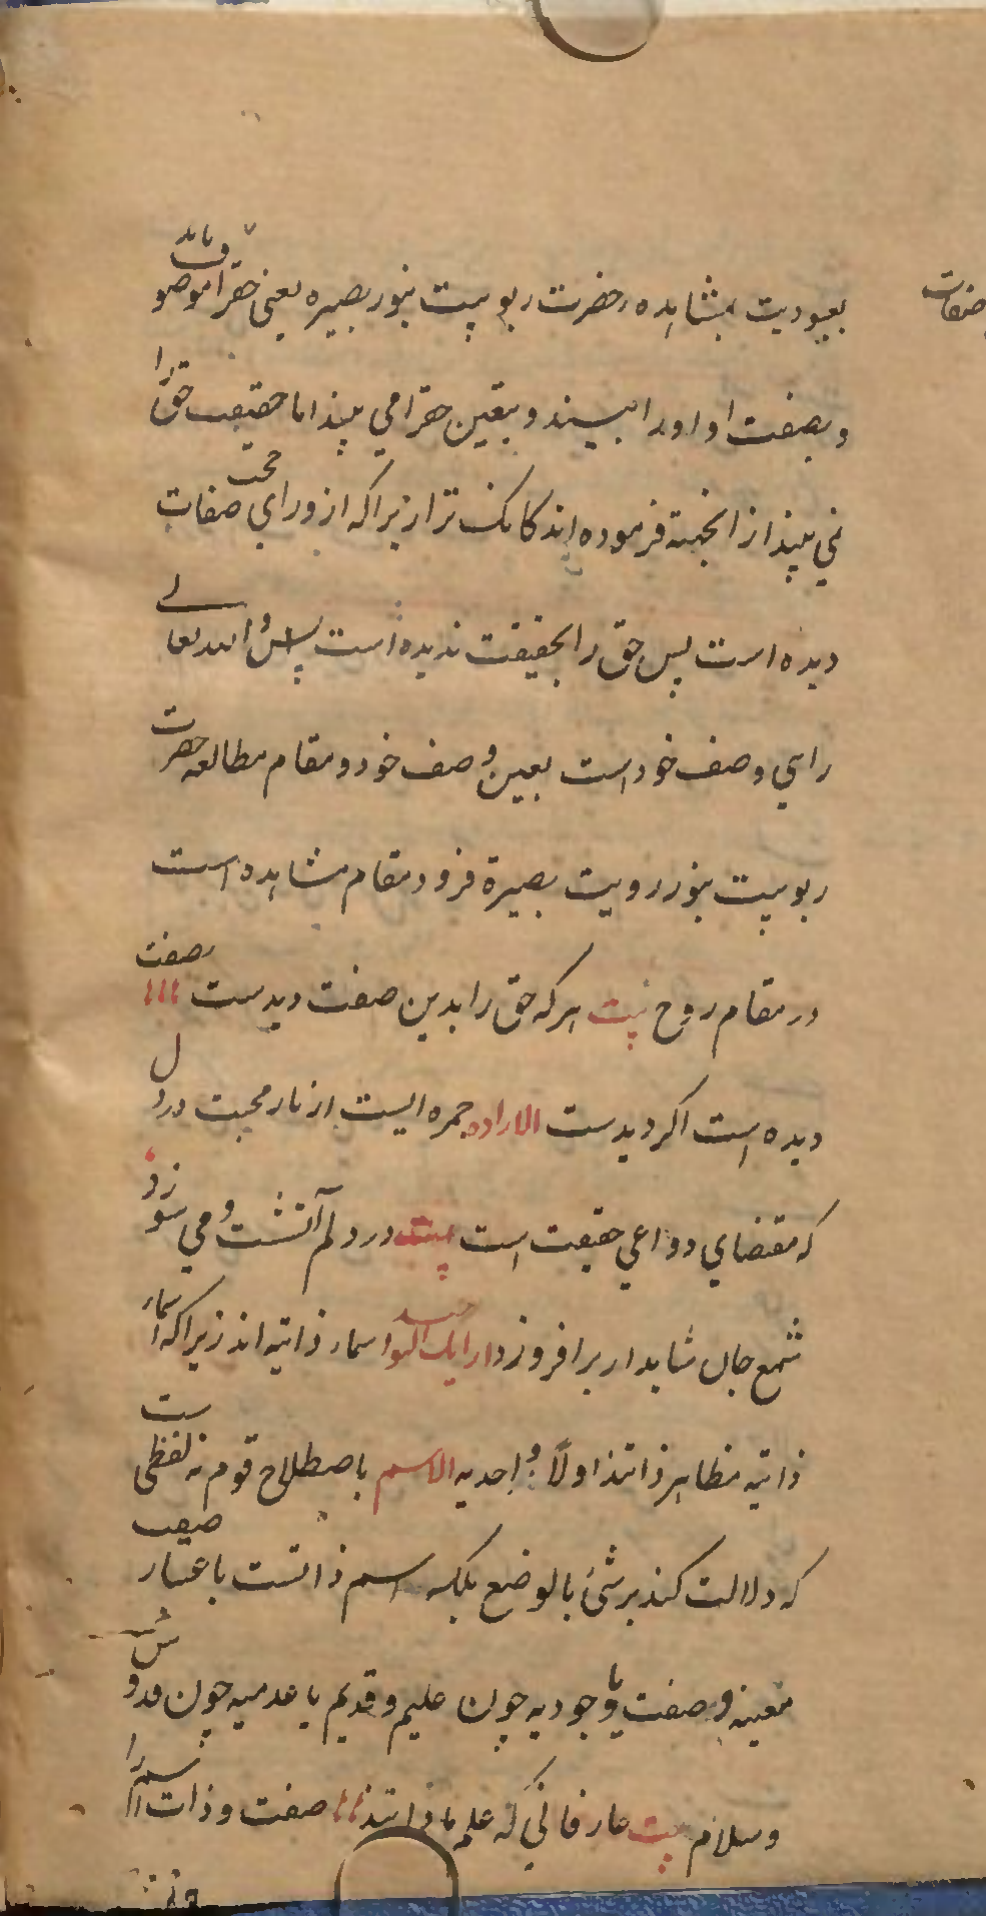 بعبودیت بمشاهده حضرت ربوبیت بنور بصیره یعنی حقرا موصوف باید
صفات
و بصفت او او را بیند و بیقین حقرا می بیند اما حقیقت حق را
نمی بیند از انجهته فرموده اند کانک تراه زیرا که از ورای صفات
دیده است پس حق را بحقیقت ندیده است پس الله تعالی
رایی وصف خود است بعین وصف خود و مقام مطالعه حضرت
ربوبیت بنور رویت بصیرة فرود مقام مشاهده است
در مقام روح بیت هر که حق را بدین صفت دیدست بصفت
دیده است اکر دیدست الاراده جمره ایست از نار محبت در دل
که مقتضای دواعی حقیقت است بیت در دلم آتشت و می سوزد
شمع جان شاید ار برافروزد اسماء ذاتیه اند زیرا که اسماء
ذاتیه مظاهر ذاتند اولاً و احدیه الاسم باصطلاح قوم نه لفظی ست
که دلالت کند بر شئ بالوضع بلکه اسم ذاتست باعتبار صفت
معینه و صفت یا وجودیه چون علیم و قدیم یا عدمیه چون قدوش
و سلام بیت عارفانی که علم ما دانند صفت و ذات اسم را